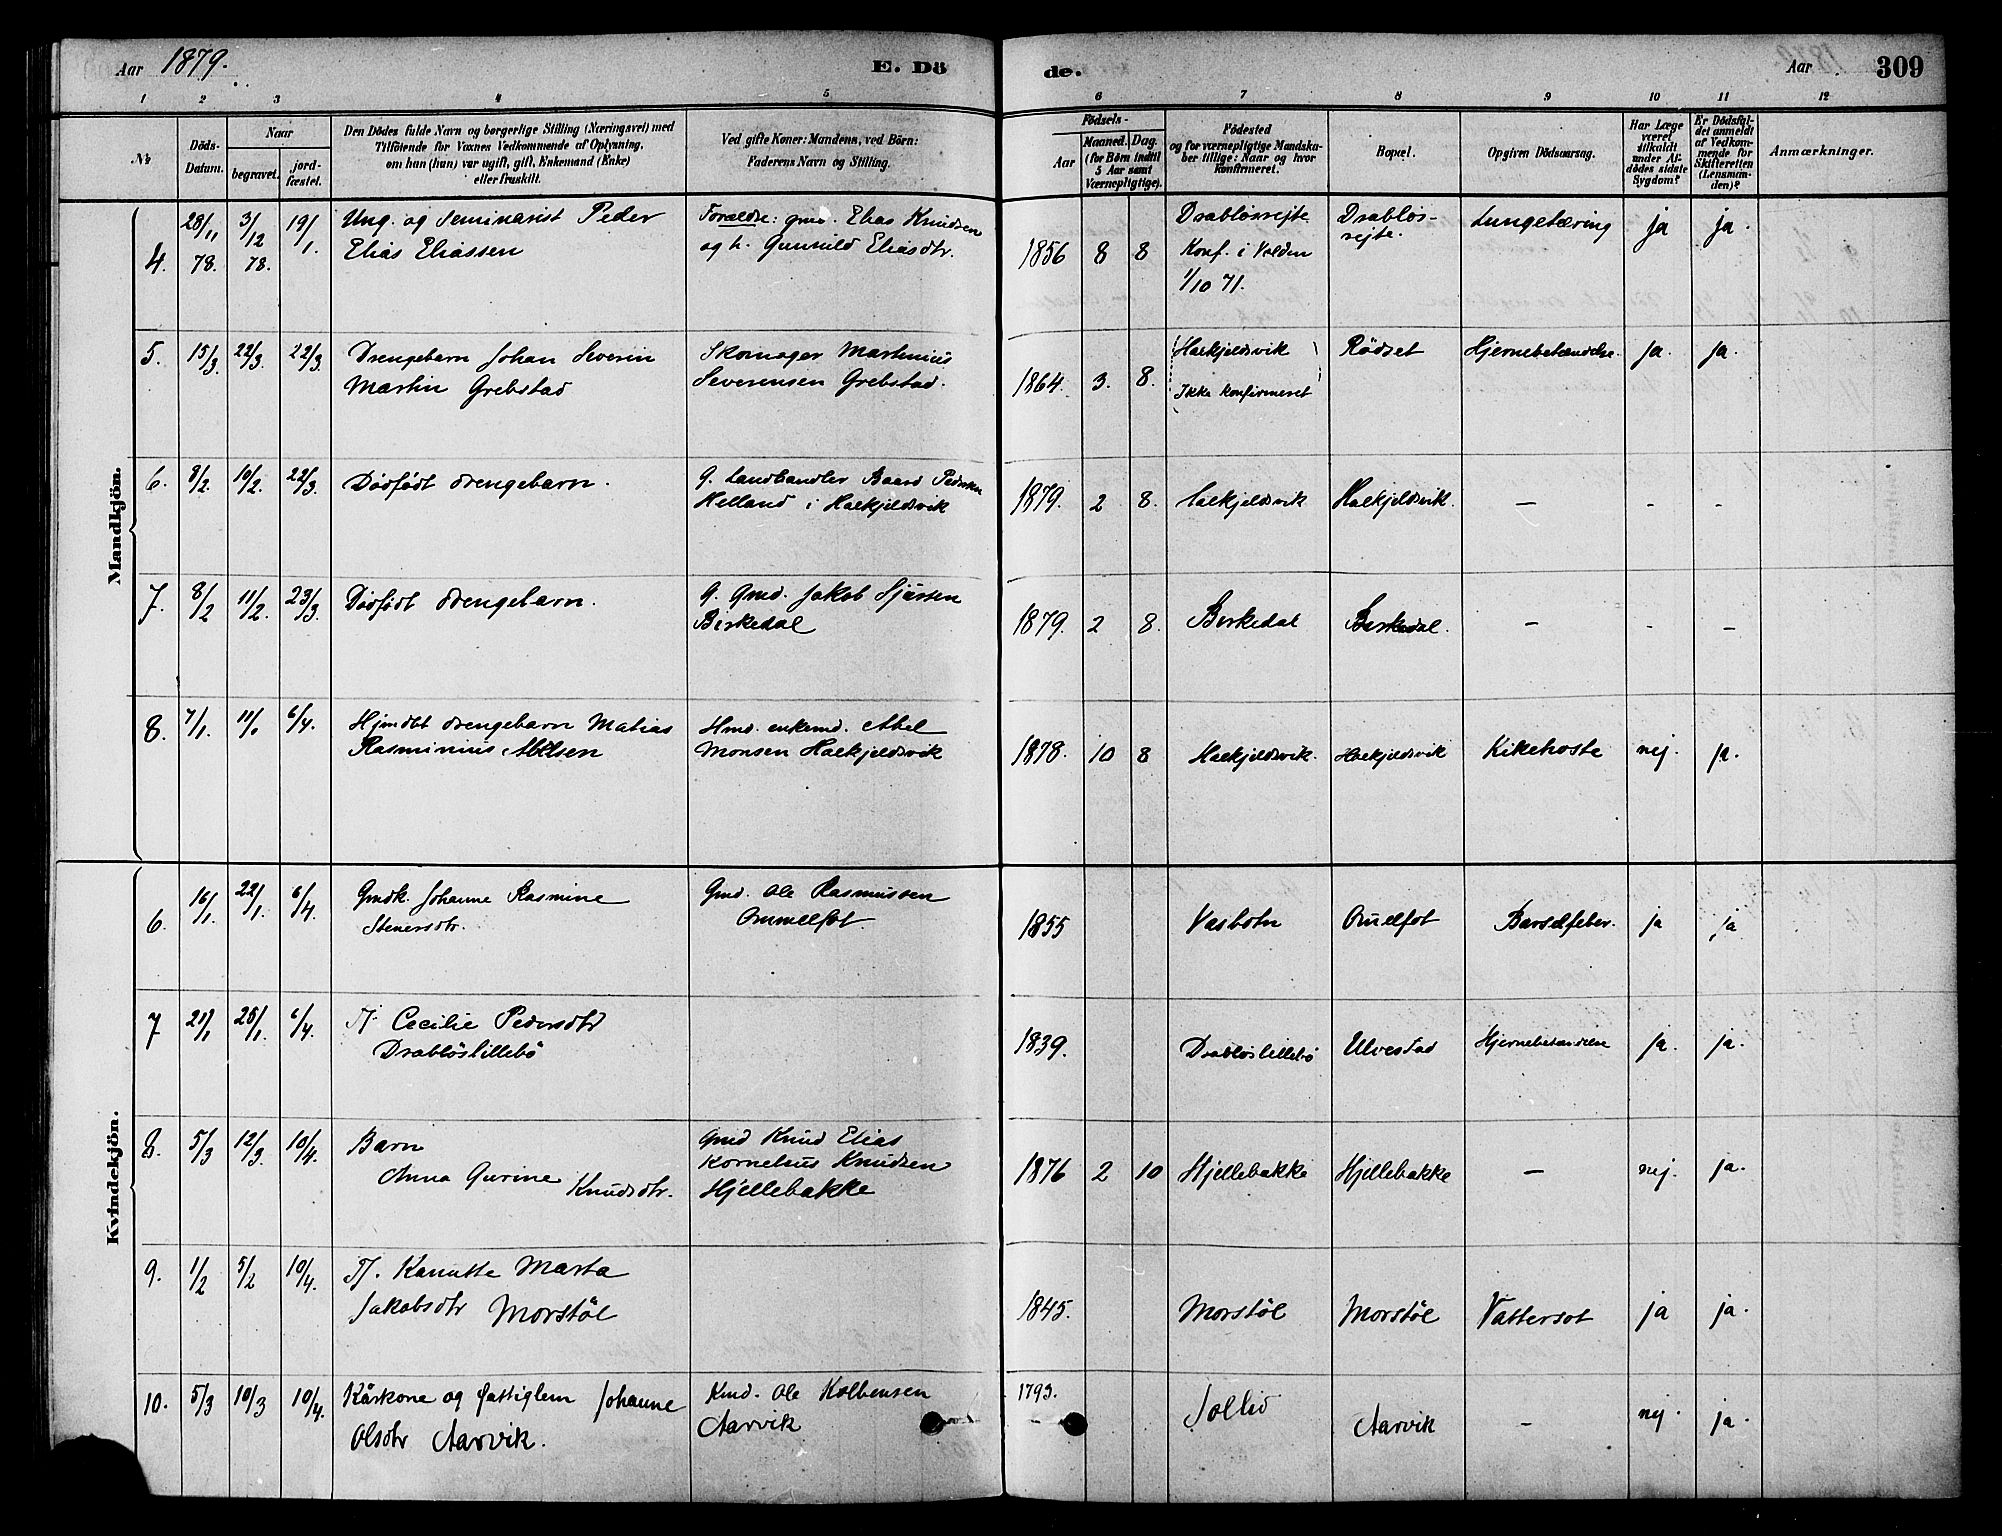 Aar 1879.
E. Döde.
Aar
309
1 2 3 4 5 6 7 8 9 10 11 12
№
Döds-Datum.
Naar
begravet.
jordfæstet.
Den Dödes fulde Navn og borgerlige Stilling (Næringsvei) med
Tilföiende for Voxnes Vedkommende af Oplysning,
om han (hun) var ugift, gift, Enkemand (Enke)
eller fraskilt.
Ved gifte Koner: Mandens, ved Börn:
Faderens Navn og Stilling.
Födsels-
Aar
Maaned. Dag.
(for Börn indtil
5 Aar samt
Værnepligtige).
Födested
og for værnepligtige Mandskaber tillige: Naar og hvor
konfirmeret.
Bopæl.
Opgiven Dödsaarsag.
Har Læge
været
tilkaldt
under Afdödes sidste
Sygdom?
Er Dödsfaldet anmeldt
af Vedkommende for
Skifteretten
(Lensmanden)?
Anmærkninger.
Mandkjön.
4. 28/11 78. 3/12 78. 19/1. Ung. og Seminarist Peder
Elias Eliassen
Forældre: gmd. Elias Knudsen
og h. Gunnild Eliasdtr.
1856 8 8
Drabløsrejte.
Konf. i Volden
1/10 71.
Drabløs-
rejte.
Lungetæring ja ja.
5. 15/3 22/3. 22/3. Drengebarn Johan Severin
Martin Grebstad
Skomager Martinius
Severensen Grebstad.
1864. 3. 8.
Haekjeldsvik
Ikke konfirmeret
Rödset Hjernebetændelse. ja. ja.
6. 8/2. 10/2. 22/3. Dødfødt drengebarn.
G. Landhandler Baard Pedersen
Helland i Haekjeldsvik
1879. 2 8. Haekjeldsvik Haekjeldsvik. — - -
7. 8/2 11/2. 23/3 Dødfødt drengebarn.
G. Gmd. Jakob Sjursen
Birkedal
1879. 2 8. Birkedal Birkedal. - - -
8. 7/1. 11/1 6/4. Hjmdbt drengebarn Matias
Rasminius Abelsen
Hmd. enkemd. Abel
Monsen Haekjeldsvik
1878. 10 8 Haekjeldsvik. Haekjeldsvik Kikehoste nej. ja.
Kvindekjön.
6. 16/1. 22/1. 6/4. Gmdk. Johanne Rasmine
Stenersdtr.
Gmd. Ole Rasmussen
Ommelfot.
1855 Vasbotn Omelfot Barselfeber. ja ja
7 21/1 28/1. 6/4. Tj. Cecilie Pedersdtr
Drabløslillebö
1839. Drabløslillebö Ulvestad Hjernebetændelse ja. ja.
8. 5/3 12/3. 10/4. Barn
Anna Gurine Knudsdtr.
Gmd Knud Elias
Kornelius Knudsen
Hjellebakke
1876 2 10 Hjellebakke Hjellebakke — nej. ja.
9. 1/2 5/2 10/4. Tj. Kanutte Marta
Jakobsdtr Morstøl
1845. Morstøl Morstøl Vattersot ja ja.
10. 5/3 10/3 10/4. Kårkone og fattiglem Johanne
Olsdtr Aarvik.
Kmd. Ole Kolbensen
Aarvik
1793. Sollid Aarvik - nej. ja.